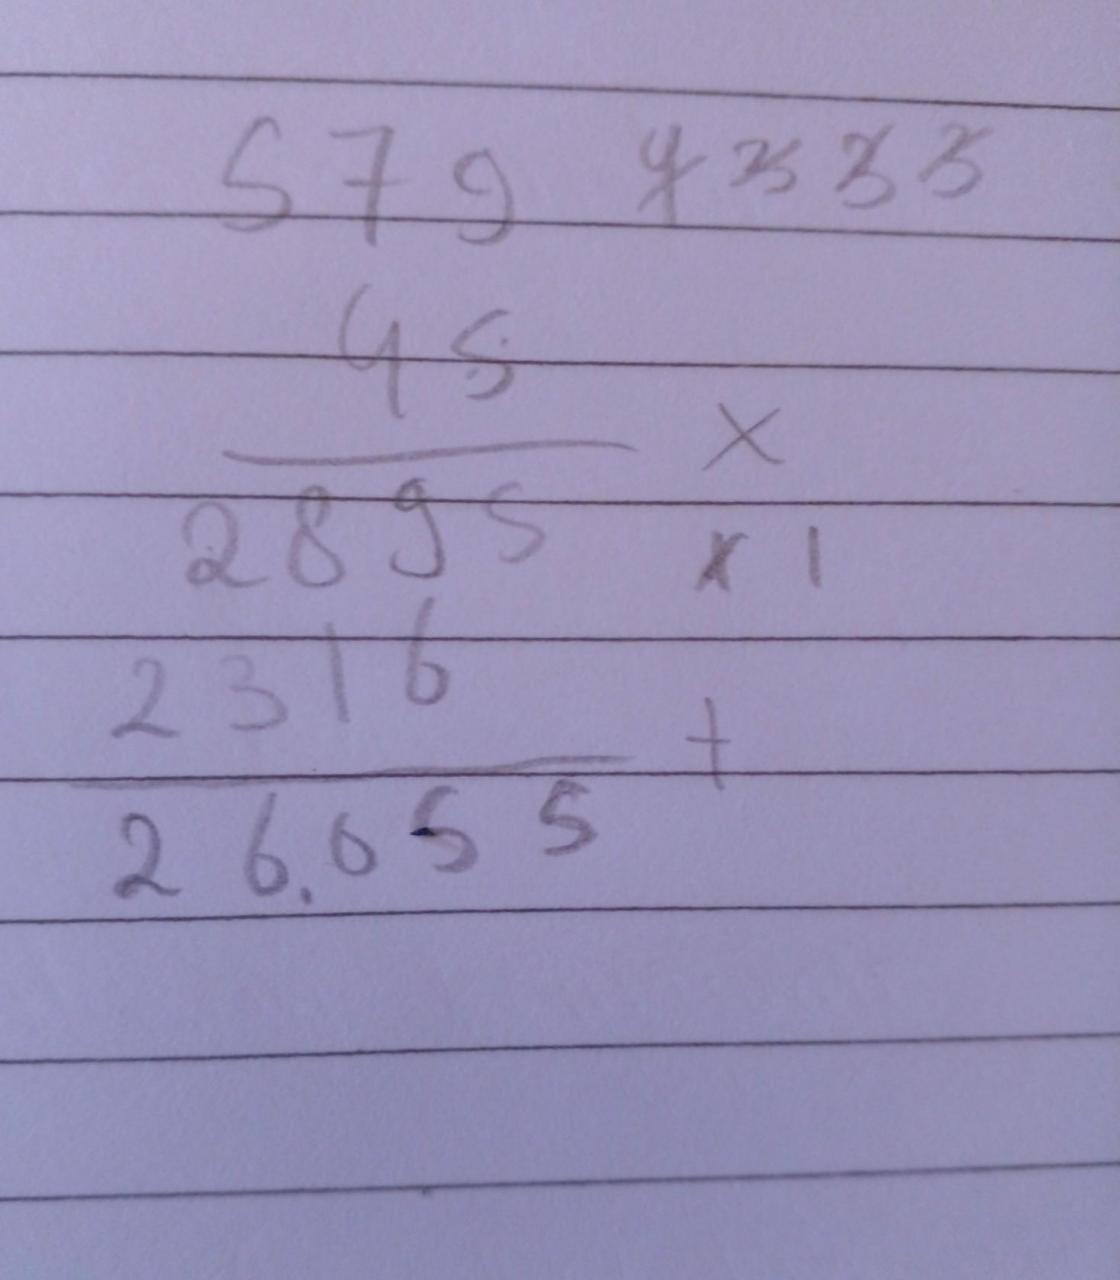 579 4333
45
×
2895
× 1
2316
+
26.055